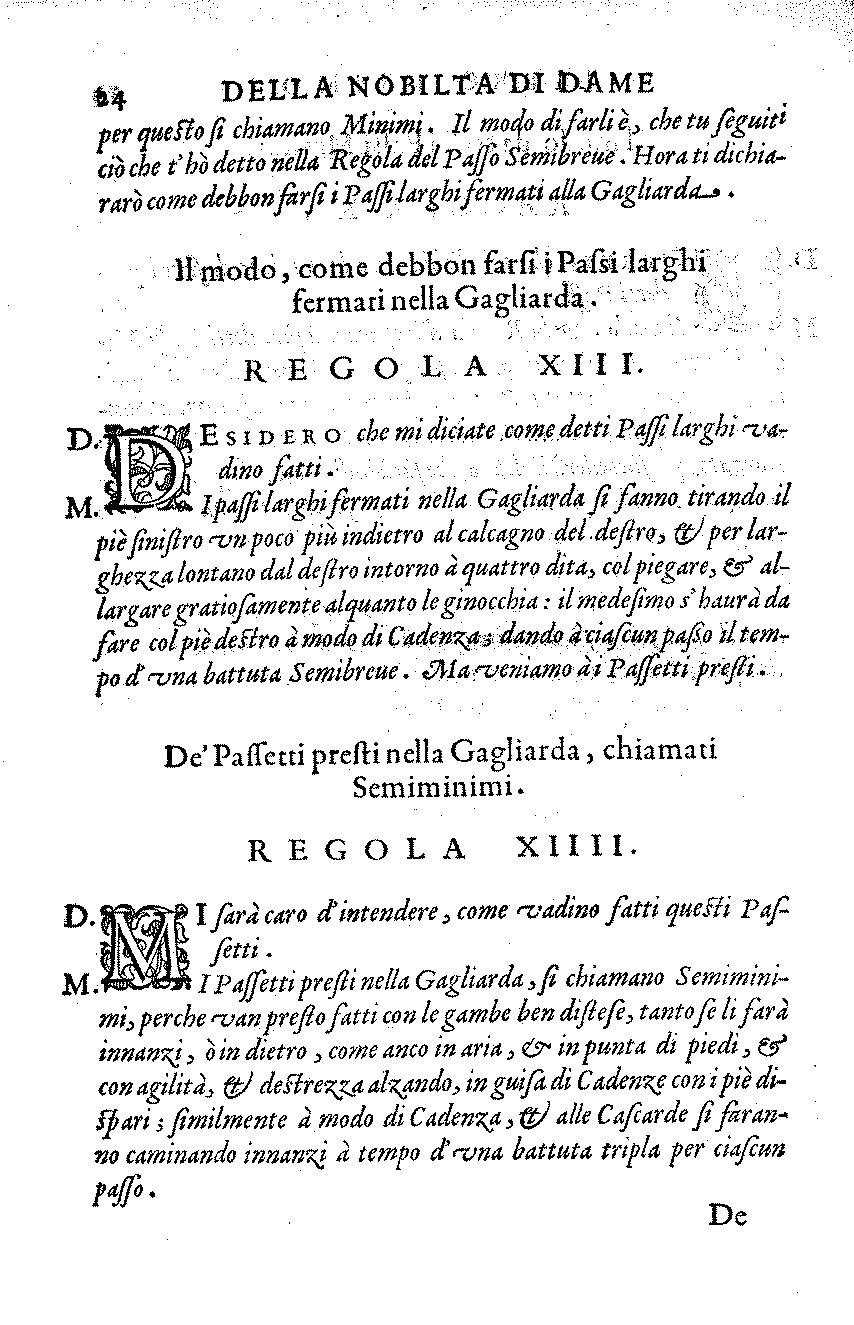 24 DELLA NOBILTA DI DAME
per questo ſi chiamano Minimi. Il modo di farli è, che tu ſeguiti
ciò che t'hò detto nella Regola del Paſſo Semibreue. Hora ti dichia-
rarò come debbon farſi i Paſſi larghi fermati alla Gagliarda.
Il modo, come debbon farſi i Paſsi larghi
fermati nella Gagliarda.
REGOLA XIII.
D. DESIDERO che mi diciate come detti Paſſi larghi va-
dino fatti.
M. I paſſi larghi fermati nella Gagliarda ſi fanno tirando il
piè ſiniſtro vn poco più indietro al calcagno del deſtro, & per lar-
ghezza lontano dal deſtro intorno à quattro dita, col piegare, & al-
largare gratioſamente alquanto le ginocchia: il medeſimo s'haurà da
fare col piè deſtro à modo di Cadenza; dando à ciaſcun paſſo il tem-
po d'vna battuta Semibreue. Ma veniamo à i Paſſetti preſti.
De' Paſſetti preſti nella Gagliarda, chiamati
Semiminimi.
REGOLA XIIII.
D. MI ſarà caro d'intendere, come vadino fatti queſti Paſ-
ſetti.
M. I Paſſetti preſti nella Gagliarda, ſi chiamano Semimini-
mi, perche van preſto fatti con le gambe ben diſteſe, tanto ſe li farà
innanzi, ò in dietro, come anco in aria, & in punta di piedi, &
con agilità, & deſtrezza alzando, in guiſa di Cadenze con i piè di-
ſpari; ſimilmente à modo di Cadenza, & alle Caſcarde ſi faran-
no caminando innanzi à tempo d'vna battuta tripla per ciaſcun
paſſo.
De